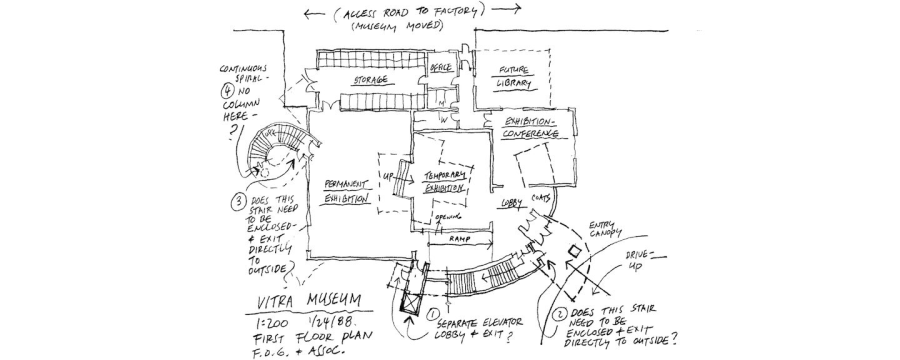 ← (ACCESS ROAD TO FACTORY) →
(MUSEUM MOVED)
CONTINUOUS
SPIRAL-
④ NO
COLUMN
HERE-
?
STORAGE
OFFICE
FUTURE
LIBRARY
M
W
EXHIBITION-
CONFERENCE
UP
PERMANENT
EXHIBITION
UP
TEMPORARY
EXHIBITION
LOBBY
COATS
OPENING
RAMP
③ DOES THIS
STAIR NEED
TO BE
ENCLOSED-
& EXIT
DIRECTLY
TO
OUTSIDE?
ENTRY
CANOPY
DRIVE-
UP
VITRA MUSEUM
1:200 1/24/88.
FIRST FLOOR PLAN
F.O.G. & ASSOC.
① SEPARATE ELEVATOR
LOBBY & EXIT?
② DOES THIS STAIR
NEED TO BE
ENCLOSED & EXIT
DIRECTLY TO OUTSIDE?